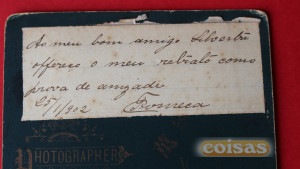 Ao meu bom amigo Silvestre
offereço o meu retrato como
prova de amizade
/1/902 Fonseca
PHOTOGRAPHER
coisas